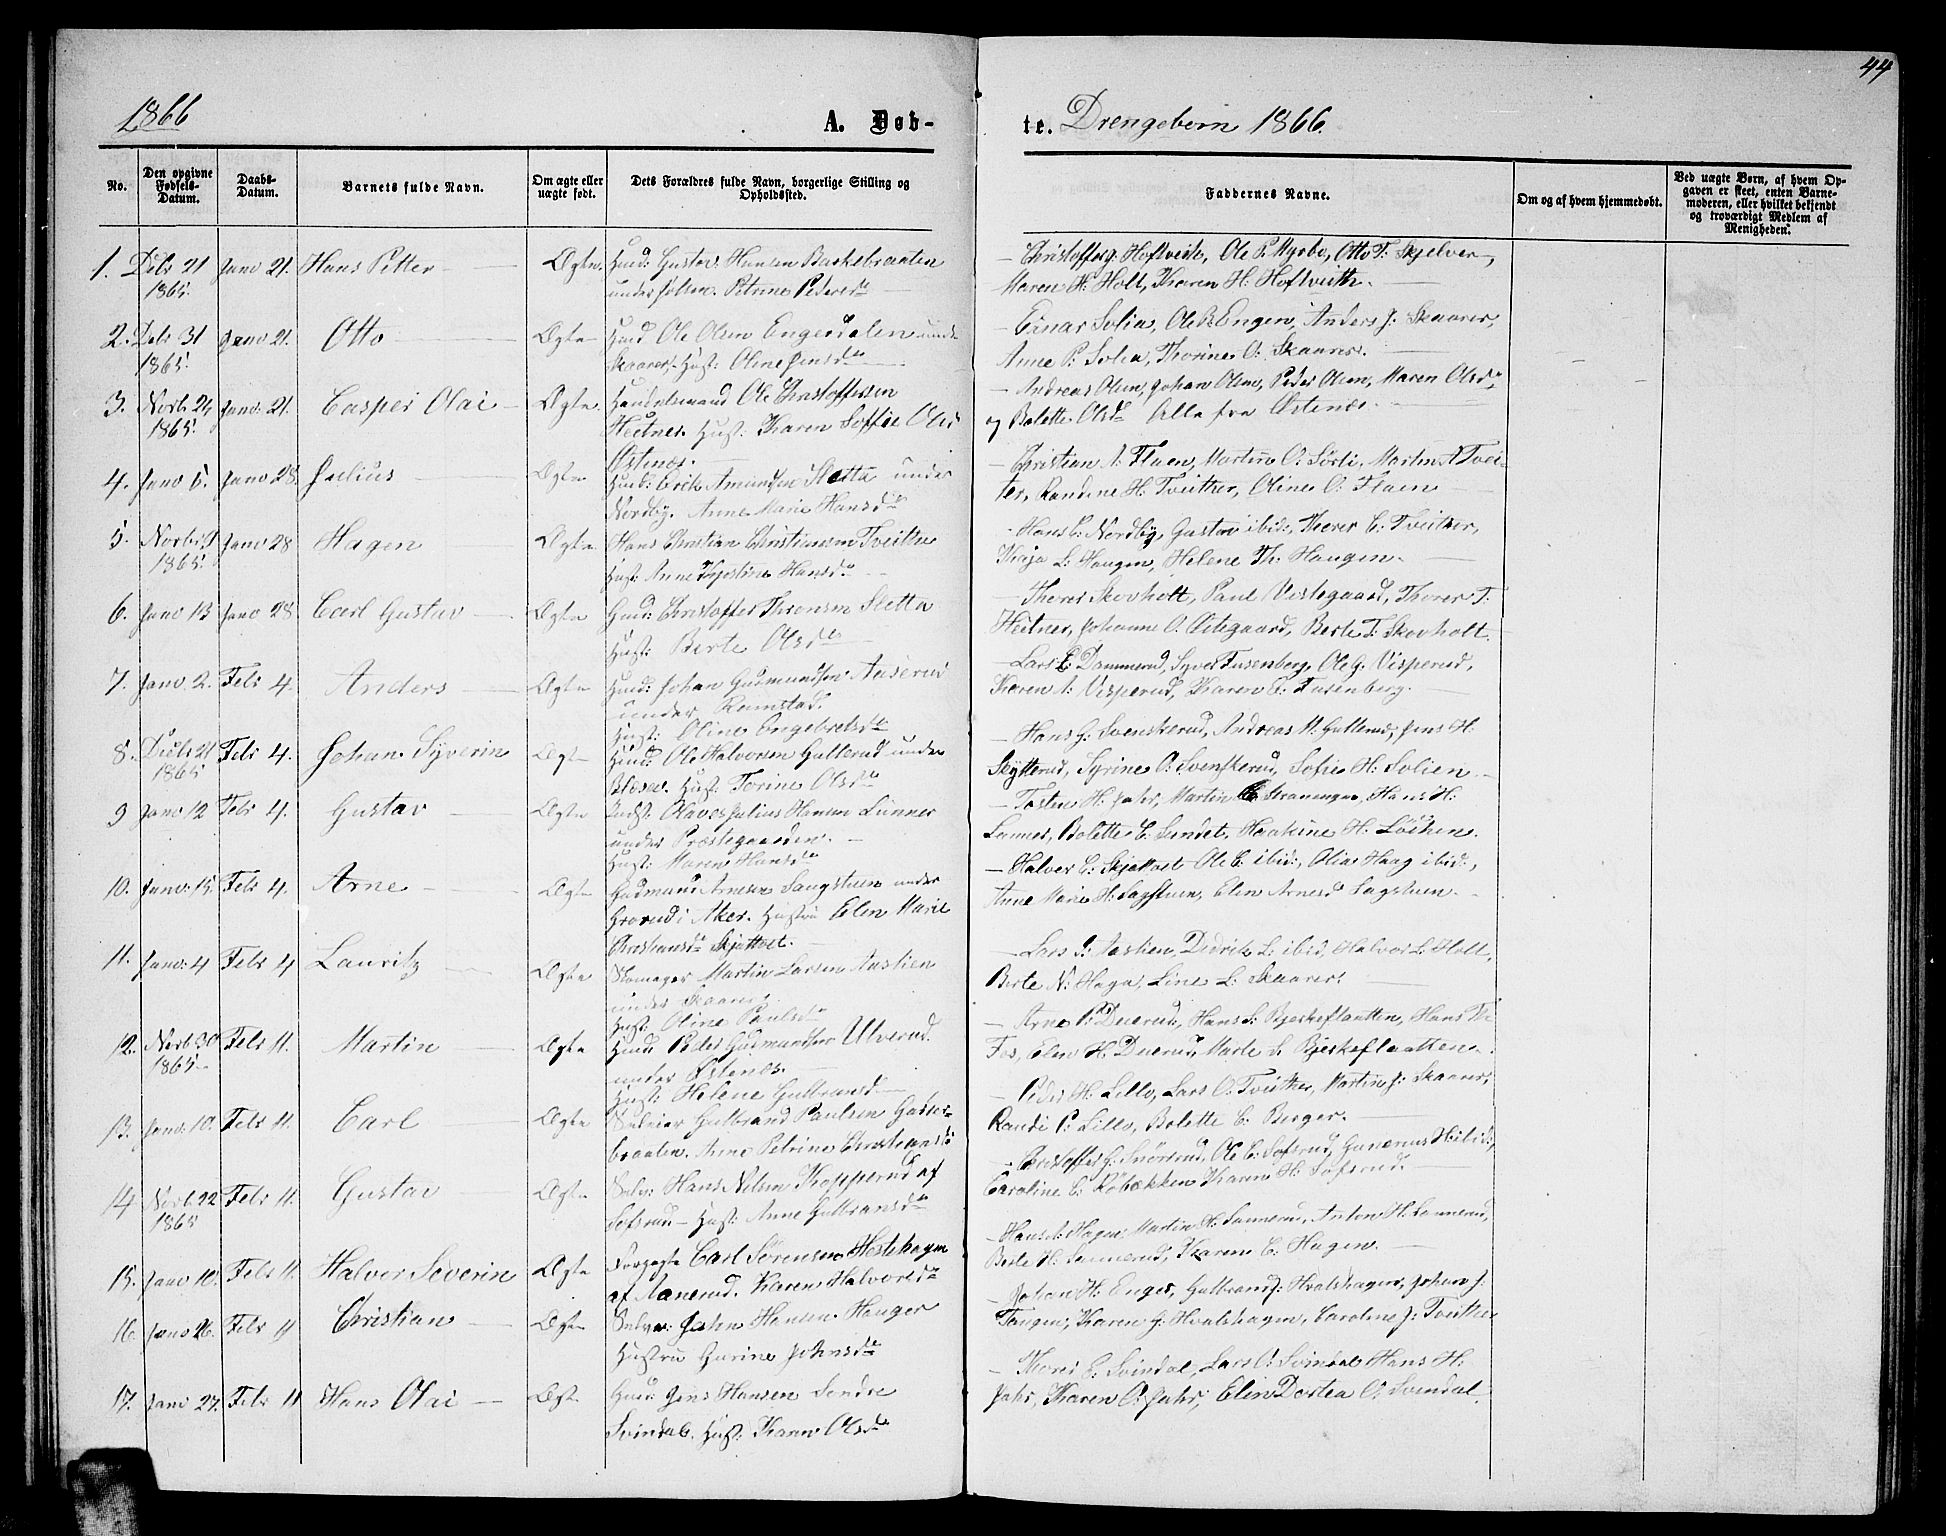 44
1866
A. Døb-
te. Drengebørn 1866.
No.
Den opgivne Fødsels-Datum.
Daabs-Datum.
Barnets fulde Navn.
Om ægte eller uægte født.
Dets Forældres fulde Navn, borgerlige Stilling og Opholdssted.
Faddernes Navne.
Om og af hvem hjemmedøbt.
Ved uægte Børn, af hvem Opgaven er skeet, enten Barnemoderen, eller hvilket bekjendt og troværdigt Medlem af Menigheden.
1. Decb 21 Janv 21. Hans Petter Ægte Huud: Gustav Hansen
1865.
under Petrine Pedersd
Ole P. Myrbo, Otto T. Skjelver,
Maren H. Holt, Karen H. Hoftvedt.
2. Decb 31 Janv 21. Otto Ægte Huud Ole Olsen Engerdalen under
1865.
Skaarer. Hust: Oline Jensd
Einar Solia, Ole Engen, Anders J. Skaarer,
Anne P. Solia, Thorine O. Skaarer.
3. Novb 24 Janv 21. Casper Olai Ægte Handelsmand Ole Christoffersen
1865.
Heitner. Hust: Karen Soffie Olsd
Østenes.
Andreas Olsen, Johan Olsen, Peder Olsen, Maren Olsd
og Bolette Olsd Alle fra Østenes.
4. Janv 5. Janv 28 Julius Ægte Huud: Erik Amundsen Sletta under
Nordby. Anne Marie Hansd
Christian A. Flaen, Martin O. Sørli, Martin A Tvei-
ter, Randine H. Tveither, Oline O. Flaen
5. Novb 9 Janv 28 Hagen Ægte Hans Christian Christiansen Tveither
1865.
Hust: Anne Kjestine Hansd
Hans C. Nordby, Gustav ibid:, Thorer C. Tveither,
Kaja L. Haugen, Helene Th. Haugen.
6. Janv 13 Janv 28. Carl Gustav Ægte Huud: Christoffer Thronsen Sletta
Hust: Berte Olsd
Thorer Skovholt, Paul Vestegaard, Thorer T.
Heitner, Johanne O. Østegaard, Berte T. Skovholt.
7. Janv. 2. Febr 4. Anders Ægte Huud: Johan Gudmundsen Auserud
under Ramstad.
Hust: Oline Engebretsd
Lars E. Dammerud, Syver Tusenberg, Ole G. Visperud,
Karen A. Visperud, Karen E. Tusenberg.
8. Decb 21 Febr 4. Johan Syverin Ægte Huud: Ole Halvorsen Gullerud under
1865
Hust: Torine Olsd
Hans G. Svenskerud, Andreas H. Gullerud, Jens H.
Skytterud, Syrine O. Svenskerud, Sofie H. Solien
9 Janv 12 Febr 4. Gustav Ægte Indst: Olaves Julius Hansen Lunner
under Præstegaarden.
Hust: Maren Hansd
Tosten H. Jahr, Martin Hans H.
Lunner, Bolette C. Sundet, Haakine H. Løchen.
10. Janv 15. Febr 4. Arne Ægte Gudmund Arnesen Saugstuen under
Grorud i Aker. Hustru Elen Marie
Christiansd Skjøttvet.
Halver C. Skjøttvet Ole C. ibid:, Olia Haag ibid:,
Anne Marie H. Sagstuen, Elen Arnesd Sagstuen.
11. Janv 4 Febr 4 Lauritz Ægte Skomager Martin Larsen Aastien
under Skaarer
Hust: Oline Paulsd
Lars Aastien, Didrik L. ibid, Halvor L. Holt,
Berte N. Haga, Line L. Skaarer.
12. Novb 30 Febr 11. Martin Ægte Huud Peder Gudmundsen Ulverud
1865
under Østenes.
Hust: Helene Gulbransd
Arne P. Duerud, Hans S. Bjerkeflaatten, Hans Th
Fos, Elen H. Duerud, Marte S. Bjerkeflaatten.
13. Janv 10. Febr 11. Carl Ægte Selveier Gulbrand Paulsen
braaten. Anne Petrine Christiansd
Peder H. Lillo, Lars O. Tveither, Martin J. Skaarer,
Randi P. Lillo, Bolette C. Berger.
14 Novb 22 Febr 11. Gustav Ægte Selv: Hans Nilsen Kopperud af
1865
Sofsrud Hust: Anne Gulbransd
Christoffer G. Snørsrud, Ole C. Sofsrud, Gunerius H. ibid:,
Caroline C. Robækken Karen H. Sofsrud.
15. Janv 10. Febr 11. Halver Severin Ægte Forpagter Carl Sørensen Hestehagen
af Aanerud. Karen Halvorsd
Hans A. Hagen Martin H. Sannerud, Anton H. Sannerud,
Berte H. Sannerud, Karen C. Hagen.
16. Janv 26. Febr 11 Christian Ægte Selve: John Hansen Hauger
Hustru Gurine Johnsd
Johan H. Enger, Gulbrand J. Hvalshagen, Johan J.
Tangen, Karen G. Hvalshagen, Caroline J. Tveither
17. Janv 27. Febr 11 Hans Olai Ægte Huud: Jens Hansen Søndre
Svindal. Hust: Karen Olsd
Thorer E. Svindal, Lars O. Svindal Hans H.
Jahr, Karen O. Jahr, Elen Dortea O. Svendal.